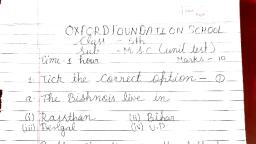 OXFORD FOUNDATION SCHOOL
Class - 5th
Sub - M.S.C (unit test)
Time - 1 hour Marks - 10
1. Tick the correct option - ①
a. The Bishnois live in
(i) Rajsthan (ii) Bihar
(iii) Bengal (iv) U.P